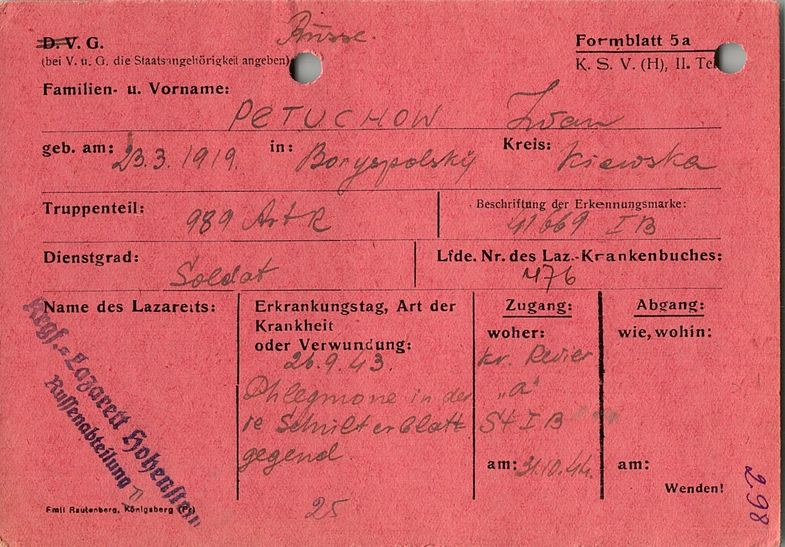 Russe.
D. V. G.
(bei V. u. G. die Staatsangehörigkeit angeben)
Formblatt 5a
K. S. V. (H), II. Teil
Familien- u. Vorname:
PETUCHOW Iwan
geb. am: 23.3.1919. in: Boryspolsky Kreis: Kiewska
Truppenteil: 989 Art R
Beschriftung der Erkennungsmarke:
41669 I B
Dienstgrad: Soldat
Lfde. Nr. des Laz.-Krankenbuches:
476
Name des Lazaretts:
Kregf.-Lazarett Hohenstein
Russenabteilung
Erkrankungstag, Art der
Krankheit
oder Verwundung:
26.9.43.
Phlegmone in der
re Schulterblatt
gegend.
25
Zugang:
woher:
Kr. Revier
„a“
St I B
am: 31.10.44.
Abgang:
wie, wohin:
am:
Wenden!
Emil Rautenberg, Königsberg (Pr)
298